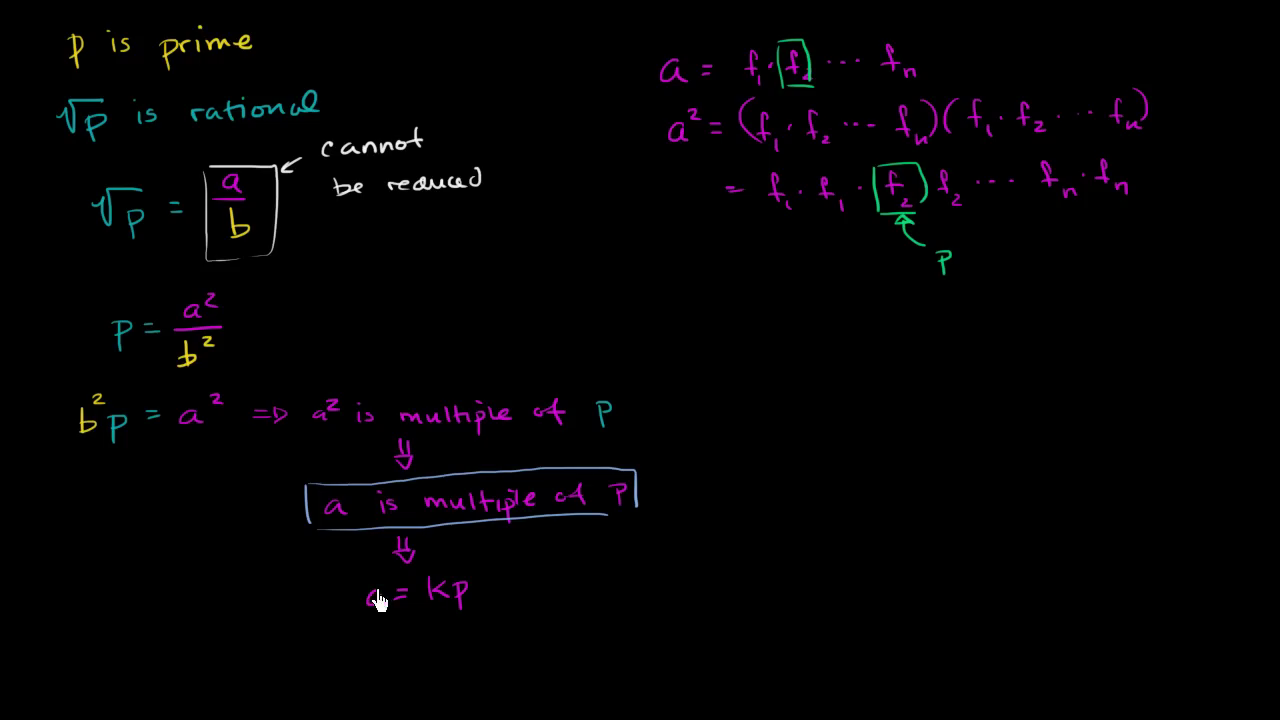 p is prime
√p is rational
cannot
be reduced
√p = a/b
p = a²/b²
b²p = a² ⇒ a² is multiple of p
⇓
a is multiple of p
⇓
a = kp
a = f₁ · f₂ ··· fₙ
a² = (f₁ · f₂ ··· fₙ)(f₁ · f₂ ··· fₙ)
= f₁ · f₁ · f₂ · f₂ ··· fₙ · fₙ
p